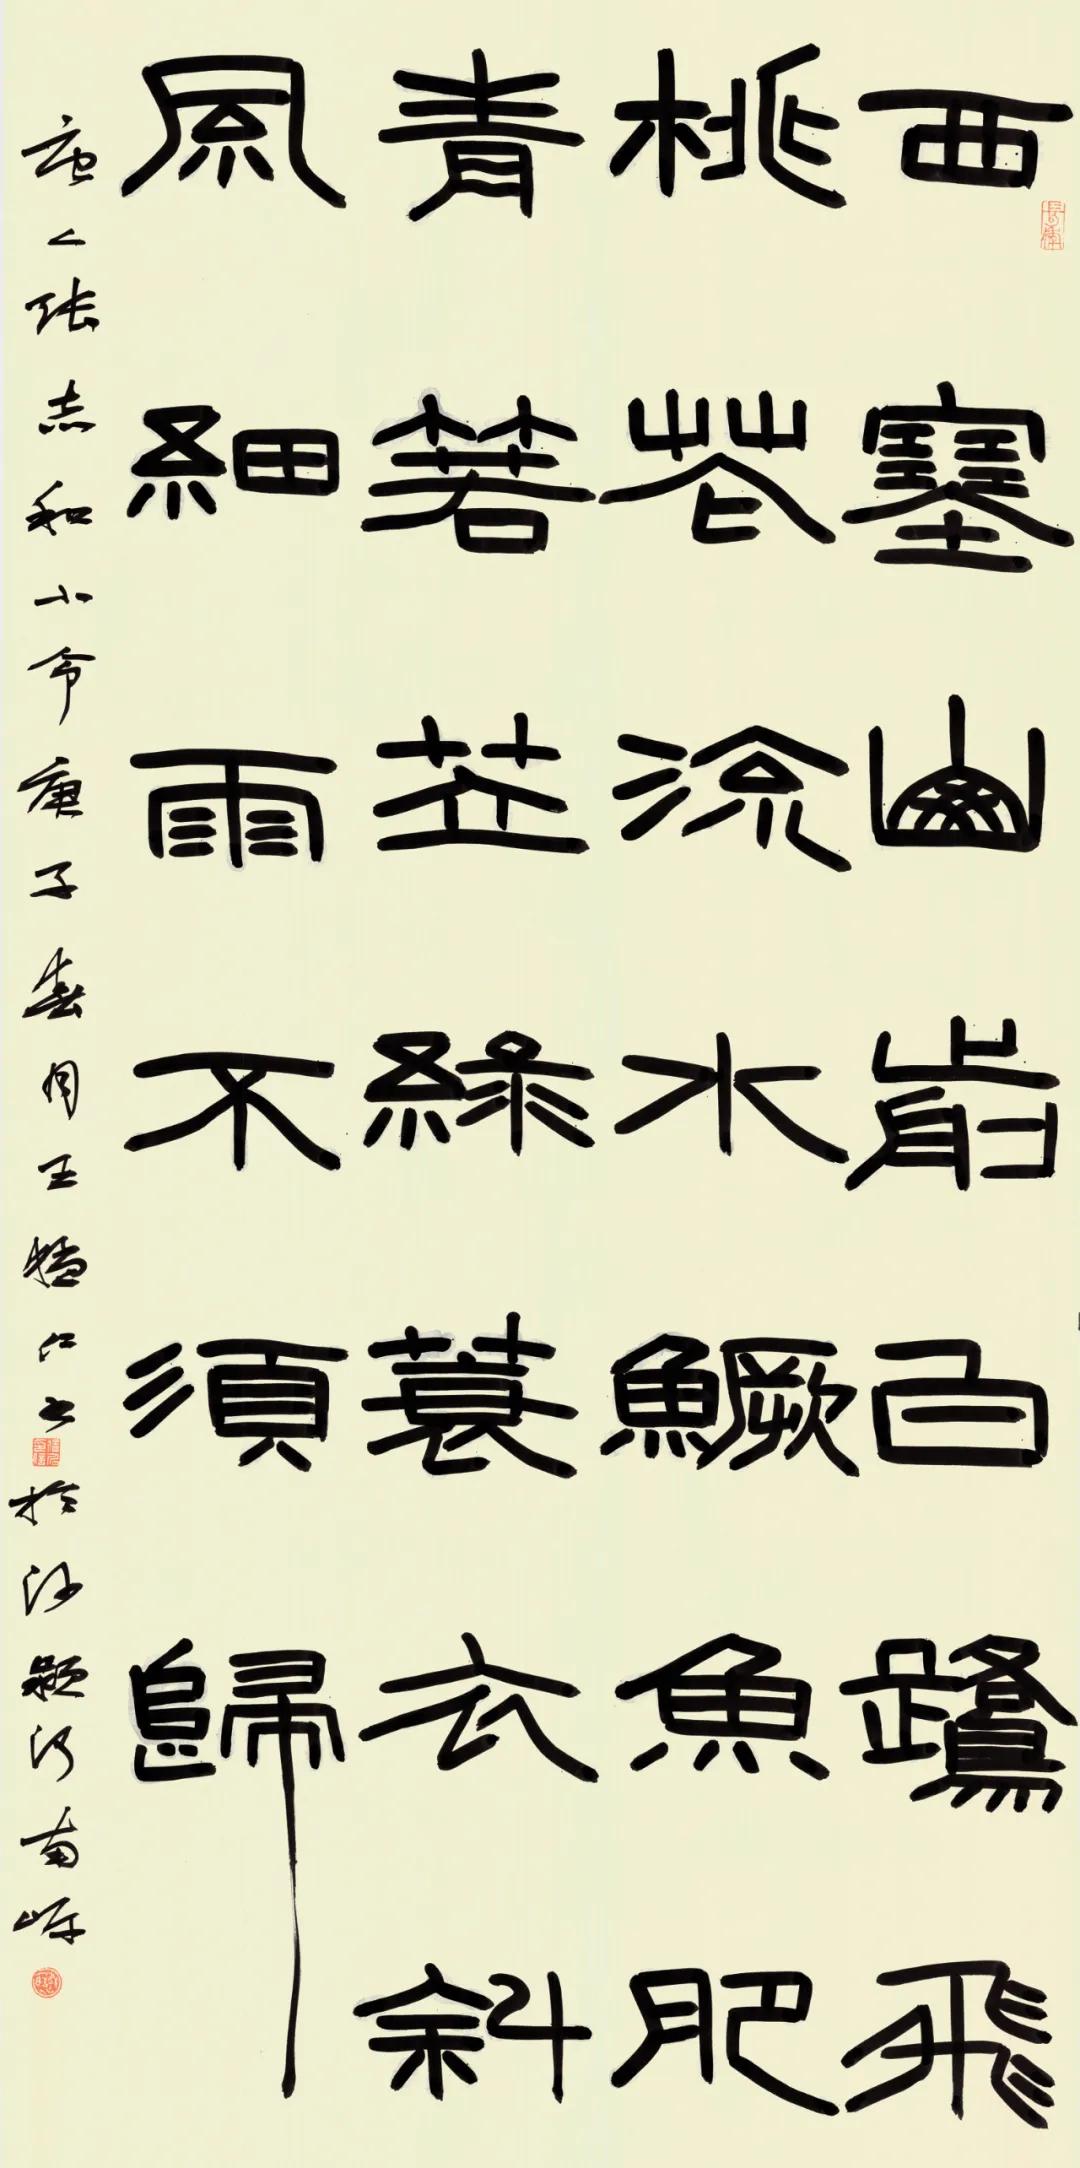 西塞山前白鷺飛
桃花流水鱖魚肥
青箬苙綠蓑衣斜
風細雨不須歸
唐人张志和小令庚子春月王猛仁书於沙颍河南岸